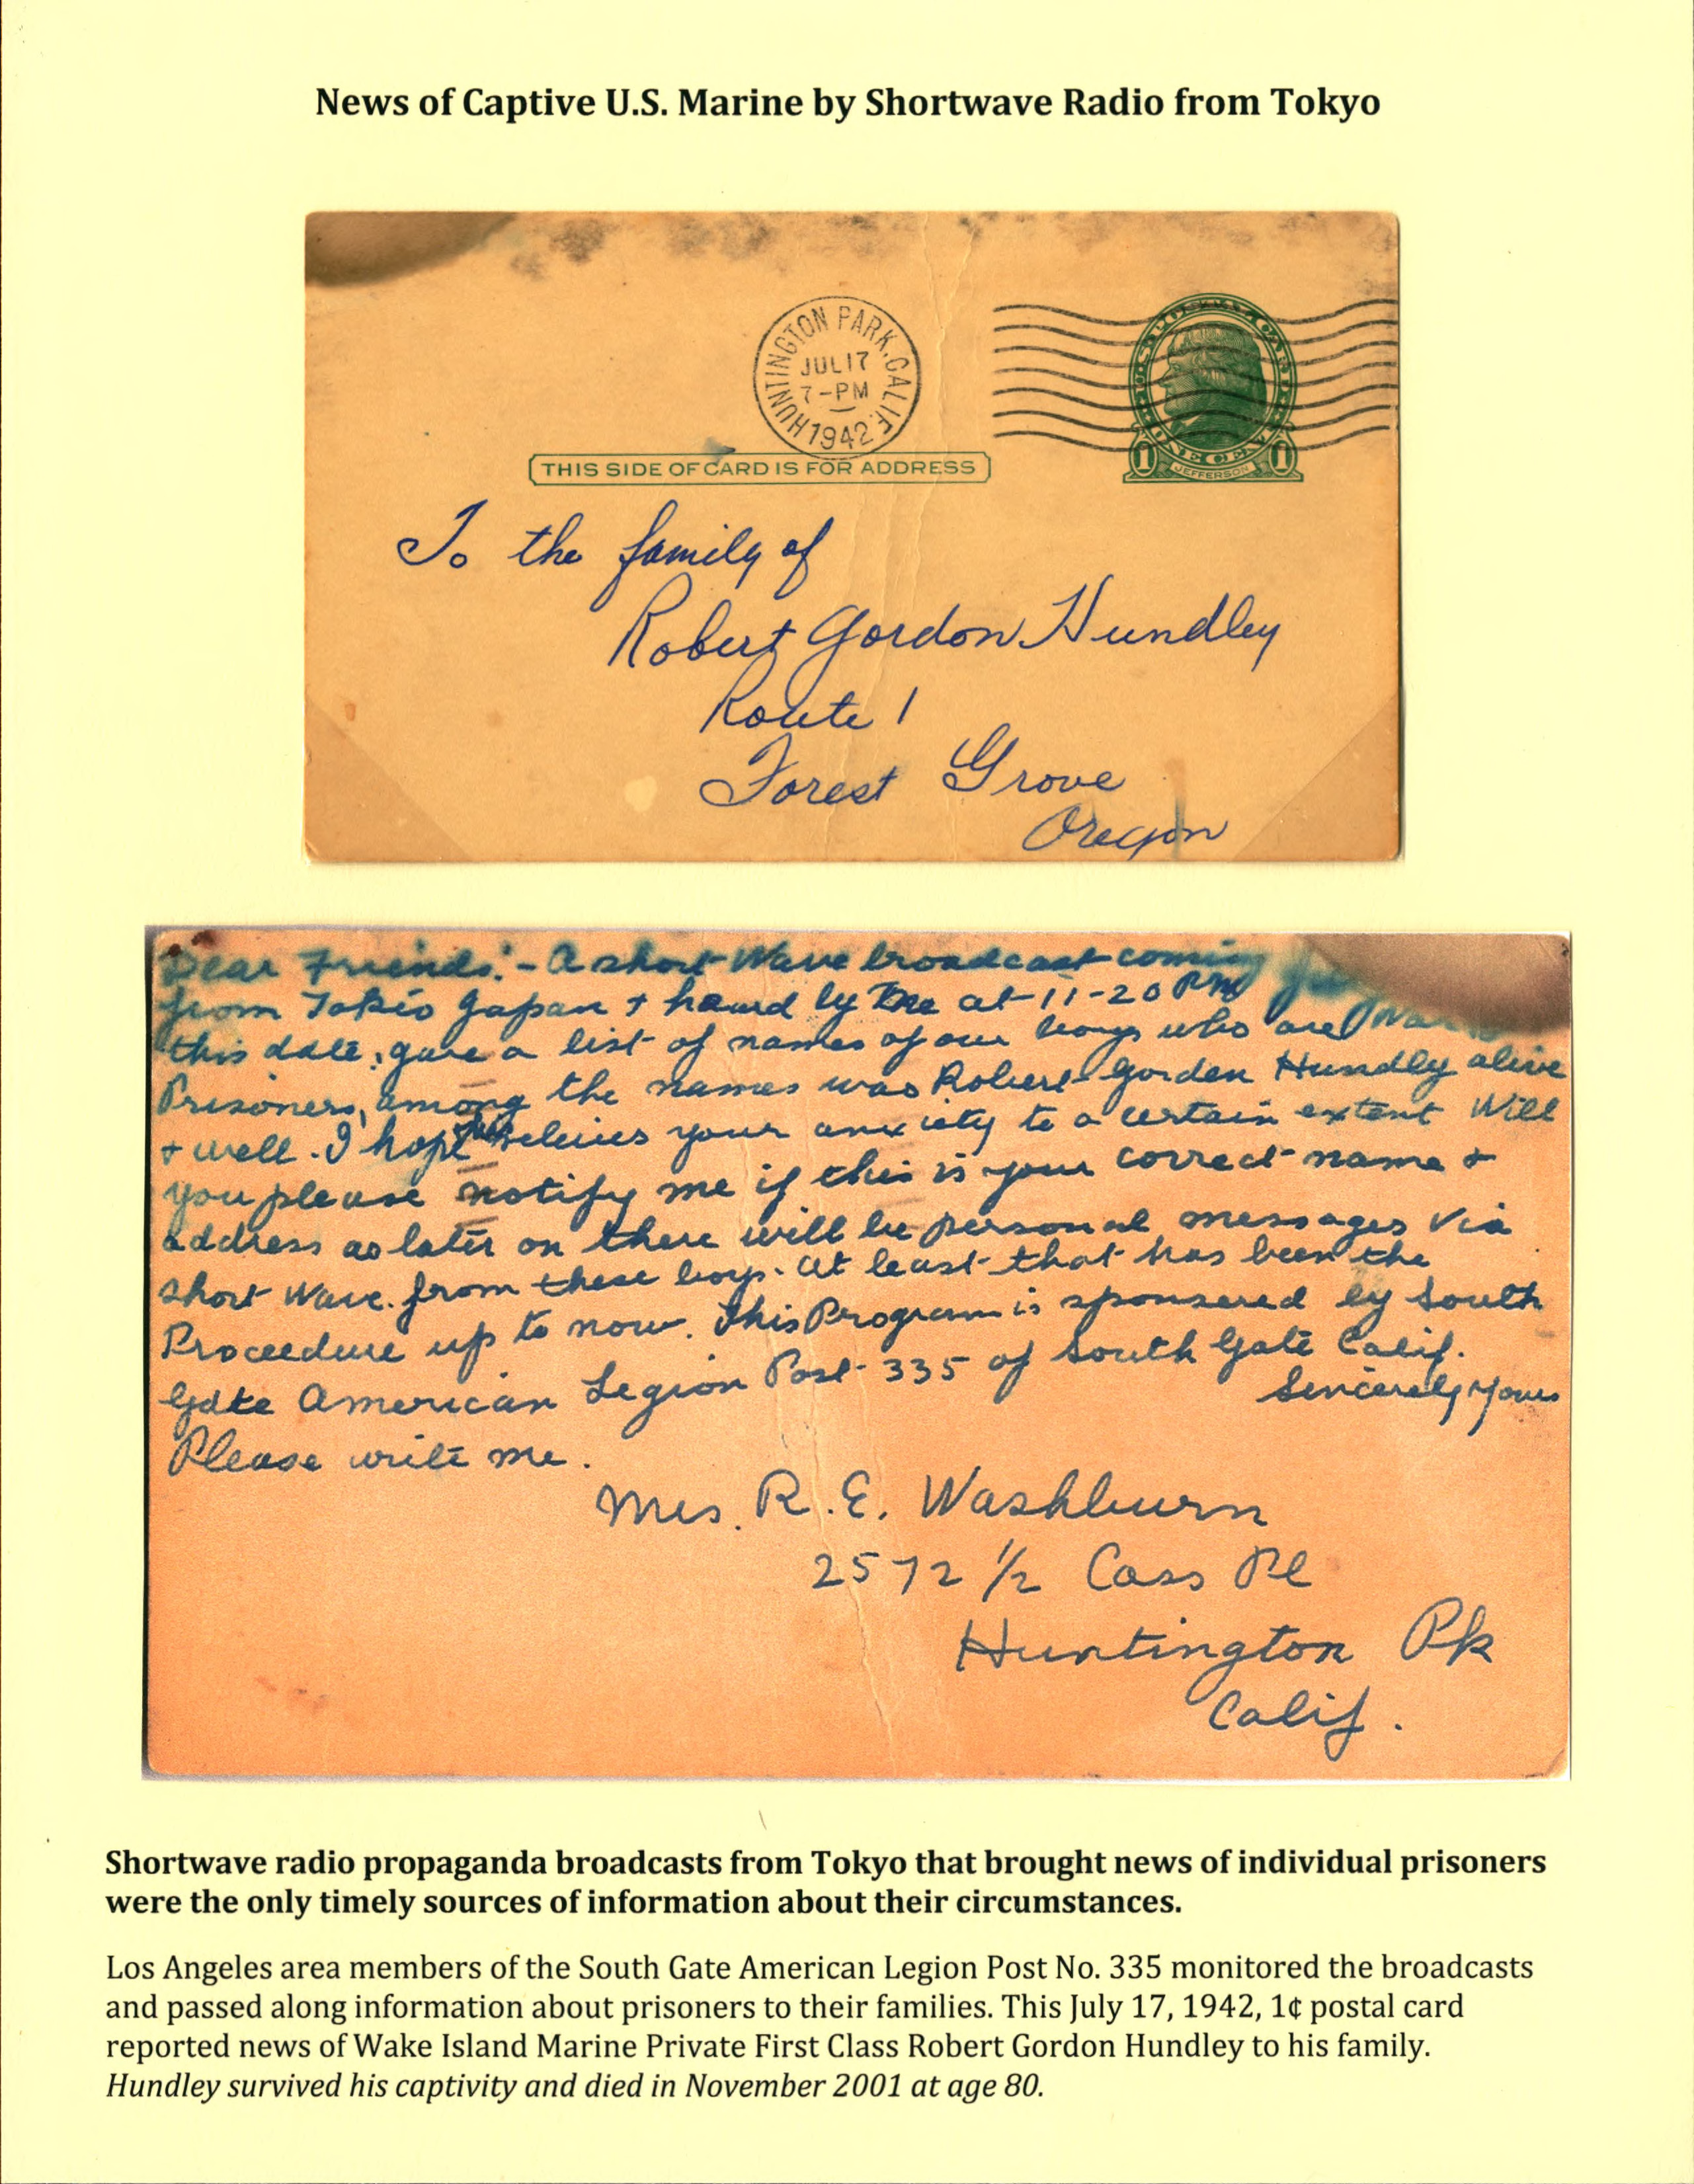 News of Captive U.S. Marine by Shortwave Radio from Tokyo
HUNTINGTON PARK, CALIF.
JUL 17
7-PM
1942
THIS SIDE OF CARD IS FOR ADDRESS
ONE CENT
1 JEFFERSON 1
To the family of
Robert Gordon Hundley
Route 1
Forest Grove
Oregon
Dear Friends:- A short Wave broadcast coming
from Tokio Japan + heard by me at 11-20 PM
this date, gave a list of names of our boys who are War
Prisoners, among the names was Robert Gorden Hundly alive
+ well. I hope this relieves your anxiety to a certain extent Will
you please notify me if this is your correct name +
address as later on there will be personal messages via
short Wave. from these boys. At least that has been the
Proceedure up to now. This Program is sponsered by South
Gate American Legion Post 335 of South Gate Calif.
Sincerely Yours
Please write me.
Mrs. R. E. Washburn
2572 1/2 Cass Pl
Huntington Pk
Calif.
Shortwave radio propaganda broadcasts from Tokyo that brought news of individual prisoners
were the only timely sources of information about their circumstances.
Los Angeles area members of the South Gate American Legion Post No. 335 monitored the broadcasts
and passed along information about prisoners to their families. This July 17, 1942, 1¢ postal card
reported news of Wake Island Marine Private First Class Robert Gordon Hundley to his family.
Hundley survived his captivity and died in November 2001 at age 80.